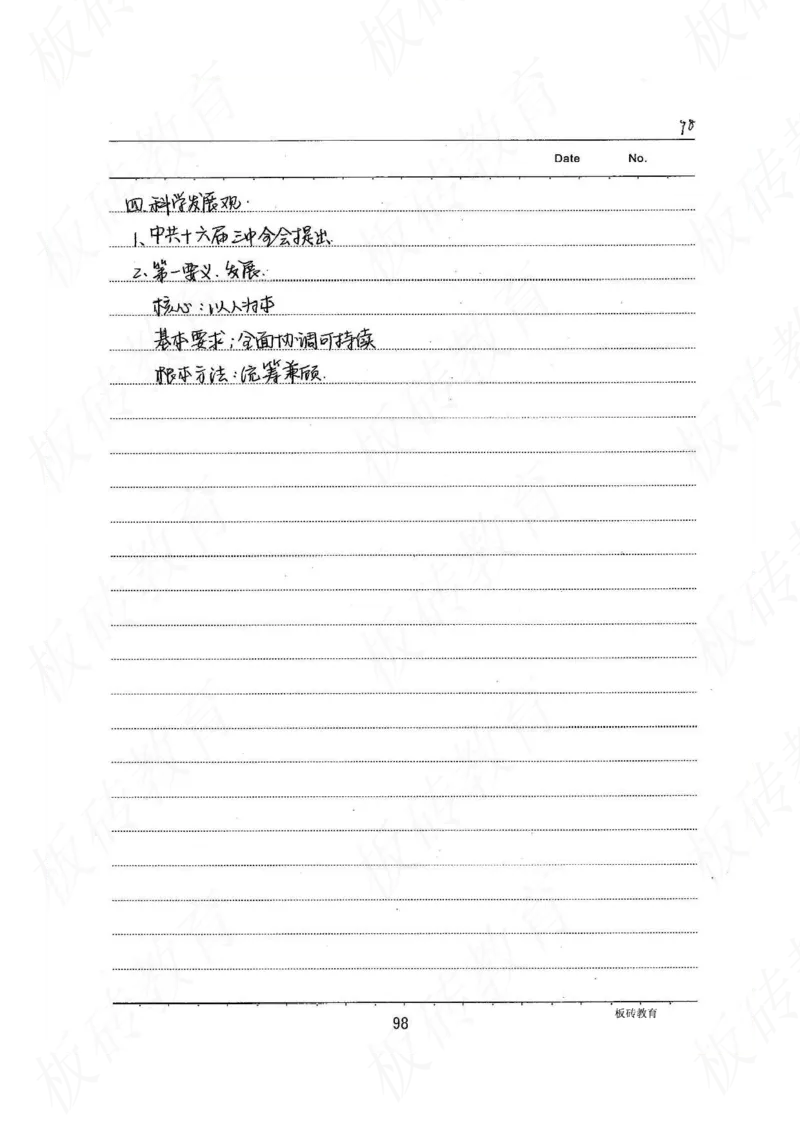 98
Date No.
四.科学发展观.
1、中共十六届三中全会提出.
2、第一要义.发展.
核心:以人为本
基本要求:全面协调可持续
根本方法:统筹兼顾.
板砖教育
98